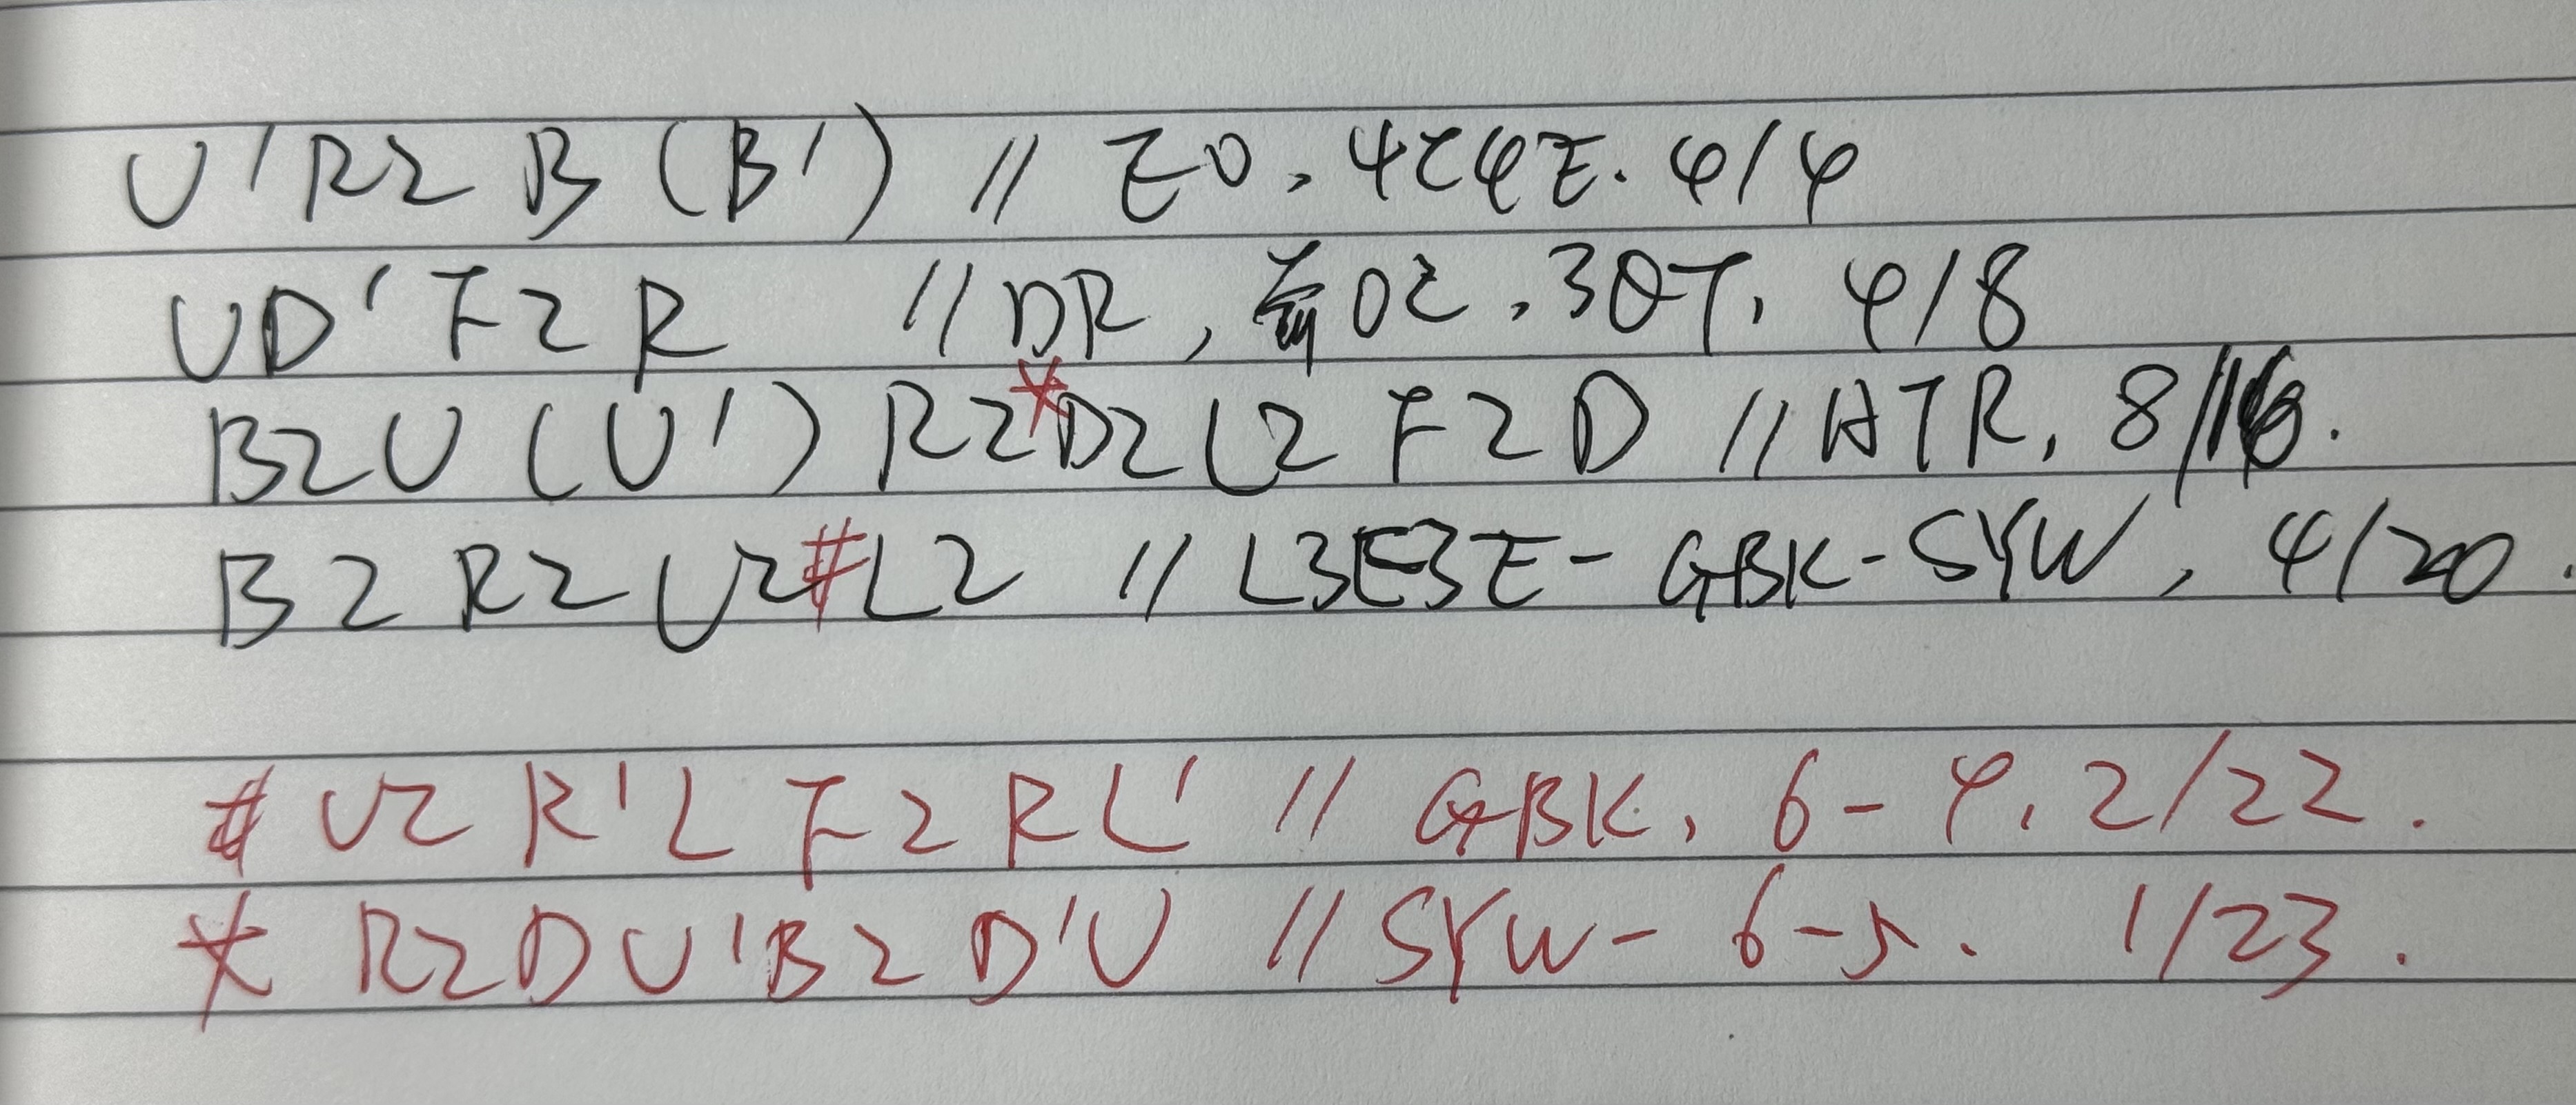 U'R2 B (B') // EO, 4C4E. 4/4
UD'F2 R // DR, 0C, 3QT, 4/8
B2U (U') R2*D2L2 F2D // HTR, 8/16.
B2 R2 U2#L2 // L3E3E-GBK-SYW, 4/20.
# U2 R'L F2RL' // GBK, 6-4, 2/22.
* R2DU'B2D'U // SYW-6-5. 1/23.